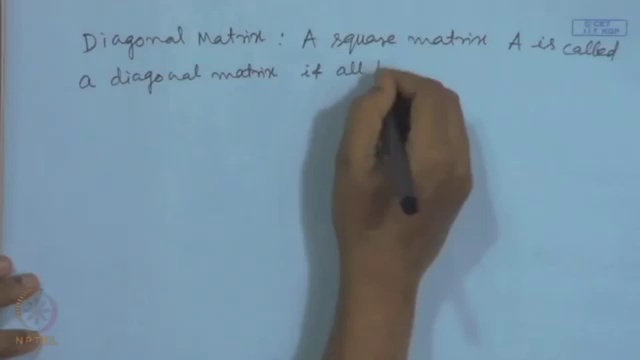 © CET
I.I.T. KGP
Diagonal Matrix : A square matrix A is called
a diagonal matrix if all
NPTEL